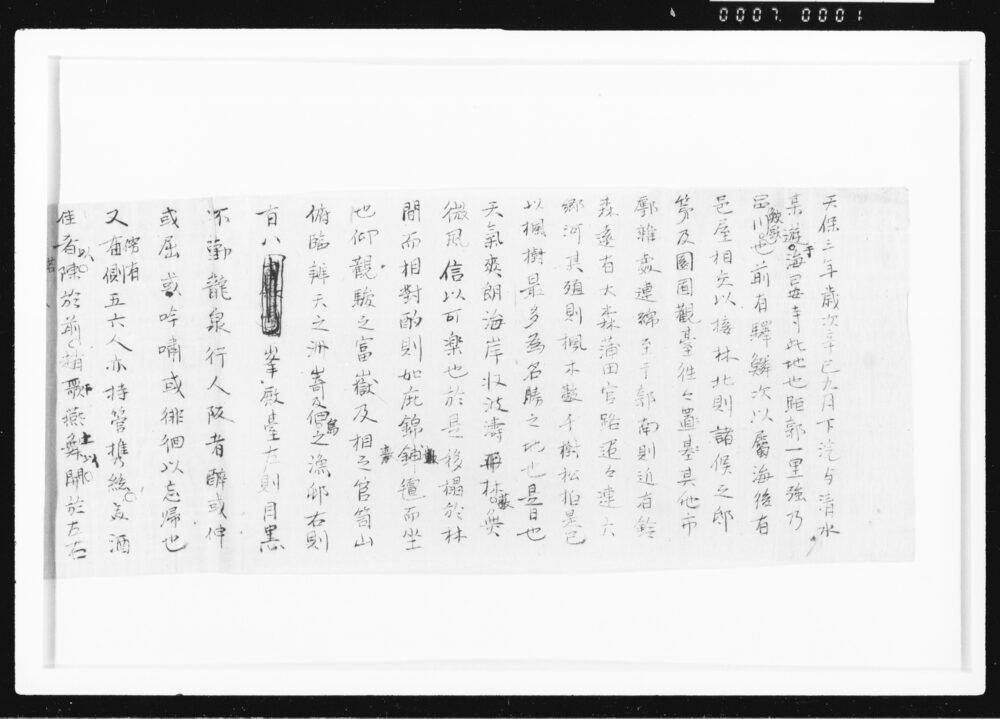 0007 0001
天保三年歳次辛巳九月下浣与清水
某遊海晏寺此地也距郭一里強乃
品川也前有驛鱗次以屬海後有
邑屋相交以接林北則諸侯之邸
第及園囿觀臺往々置基其他市
廓雜處連綿至于郭南則近有鈴
森遠有大森蒲田官路迢々達六
郷河其殖則楓木數千樹松柏是已
以楓樹最多為名勝之地也是日也
天氣爽朗海岸収波濤林與
微風信以可樂也於是移榻於林
間而相對酌則如庇錦鋪氊而坐
也仰觀駿之富嶽及相之官笥山
俯臨辨天之洲嵜及佃島之漁邸右則
有八峯殿臺左則目黒
不動龍泉行人阪者醉或伸
或屈或吟嘯或徘徊以忘帰也
又有側五六人亦持管携絃美酒
佳肴陳於前趙歌燕舞開於左右